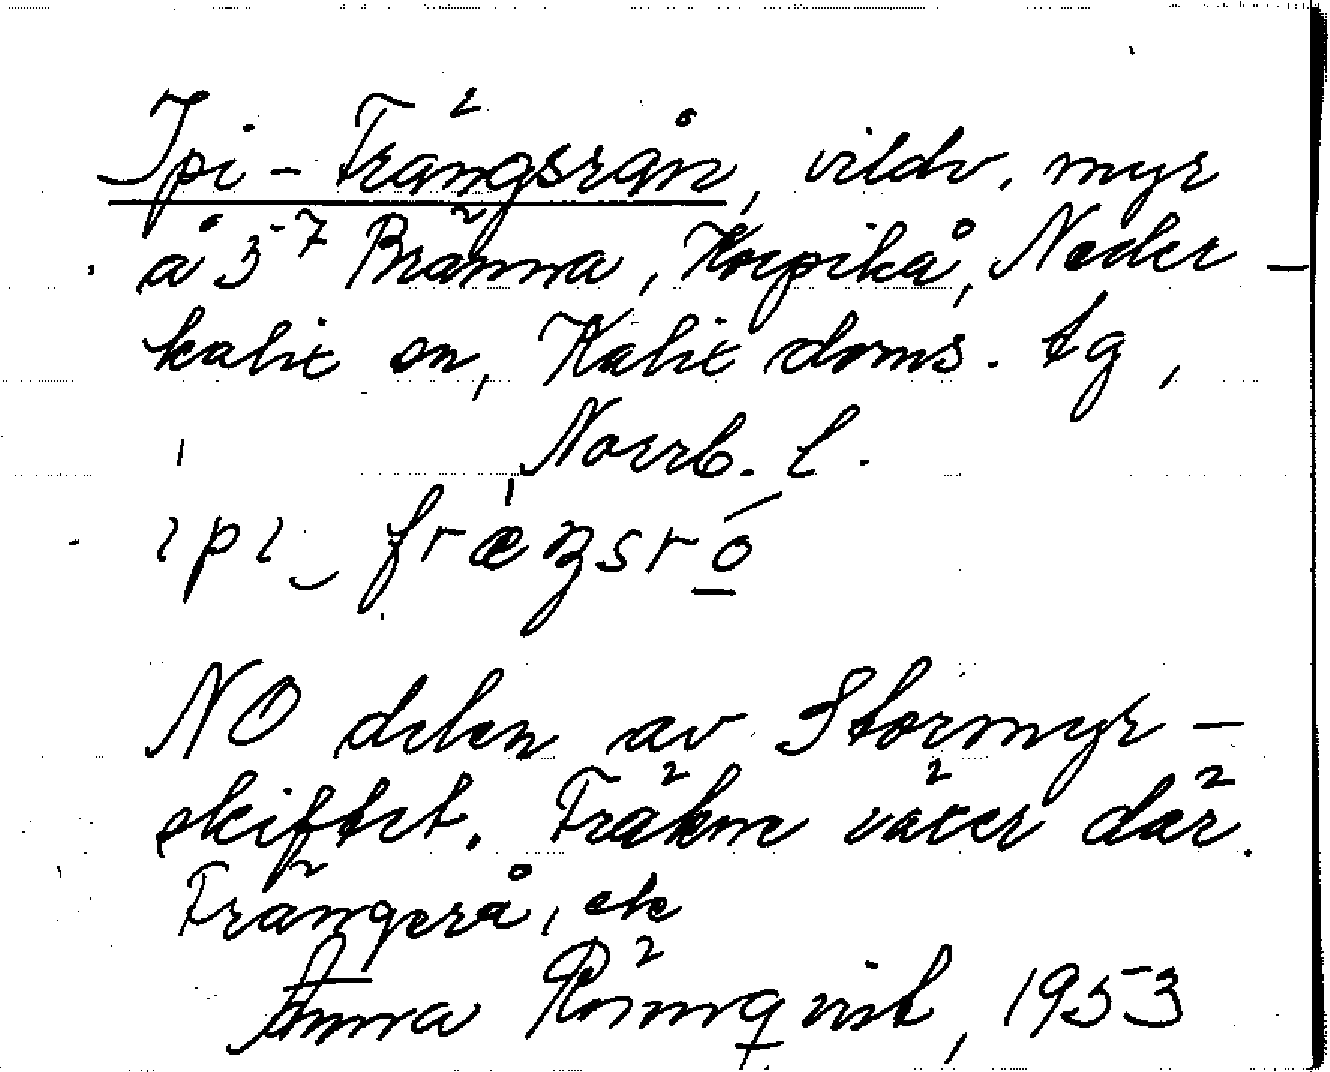 Ipi-Frängsrån, vildv. myr
å 5-7 Bränna, Korpikå, Neder-
kalix sn, Kalix doms. tg,
Norrb. l.
ıpı‿fræŋsró
NO delen av Stormyr-
skiftet. Fräkne växer där.
Frängsrå, ck
Anna Rönnqvist, 1953